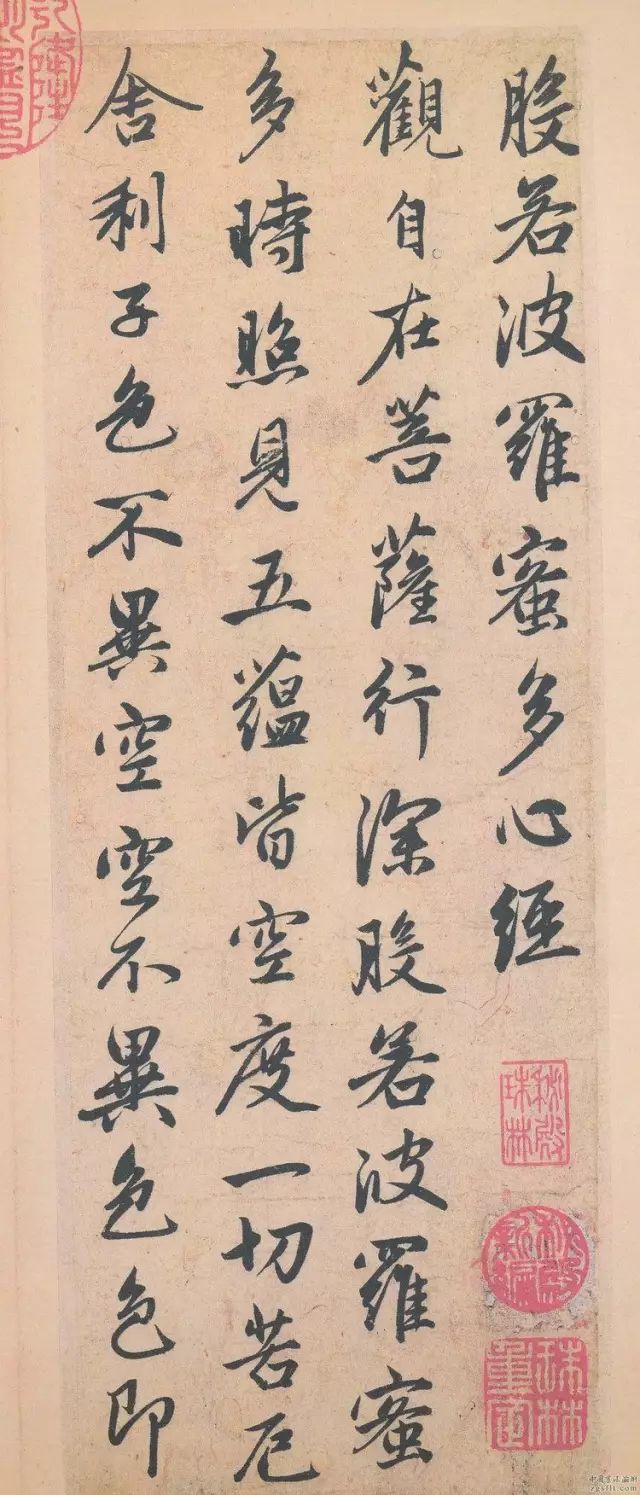 般若波羅蜜多心經
觀自在菩薩行深般若波羅蜜
多時照見五蘊皆空度一切苦厄
舍利子色不異空空不異色色即
秘殿珠林
珠林重定
中国书法论网
zgsflt.com